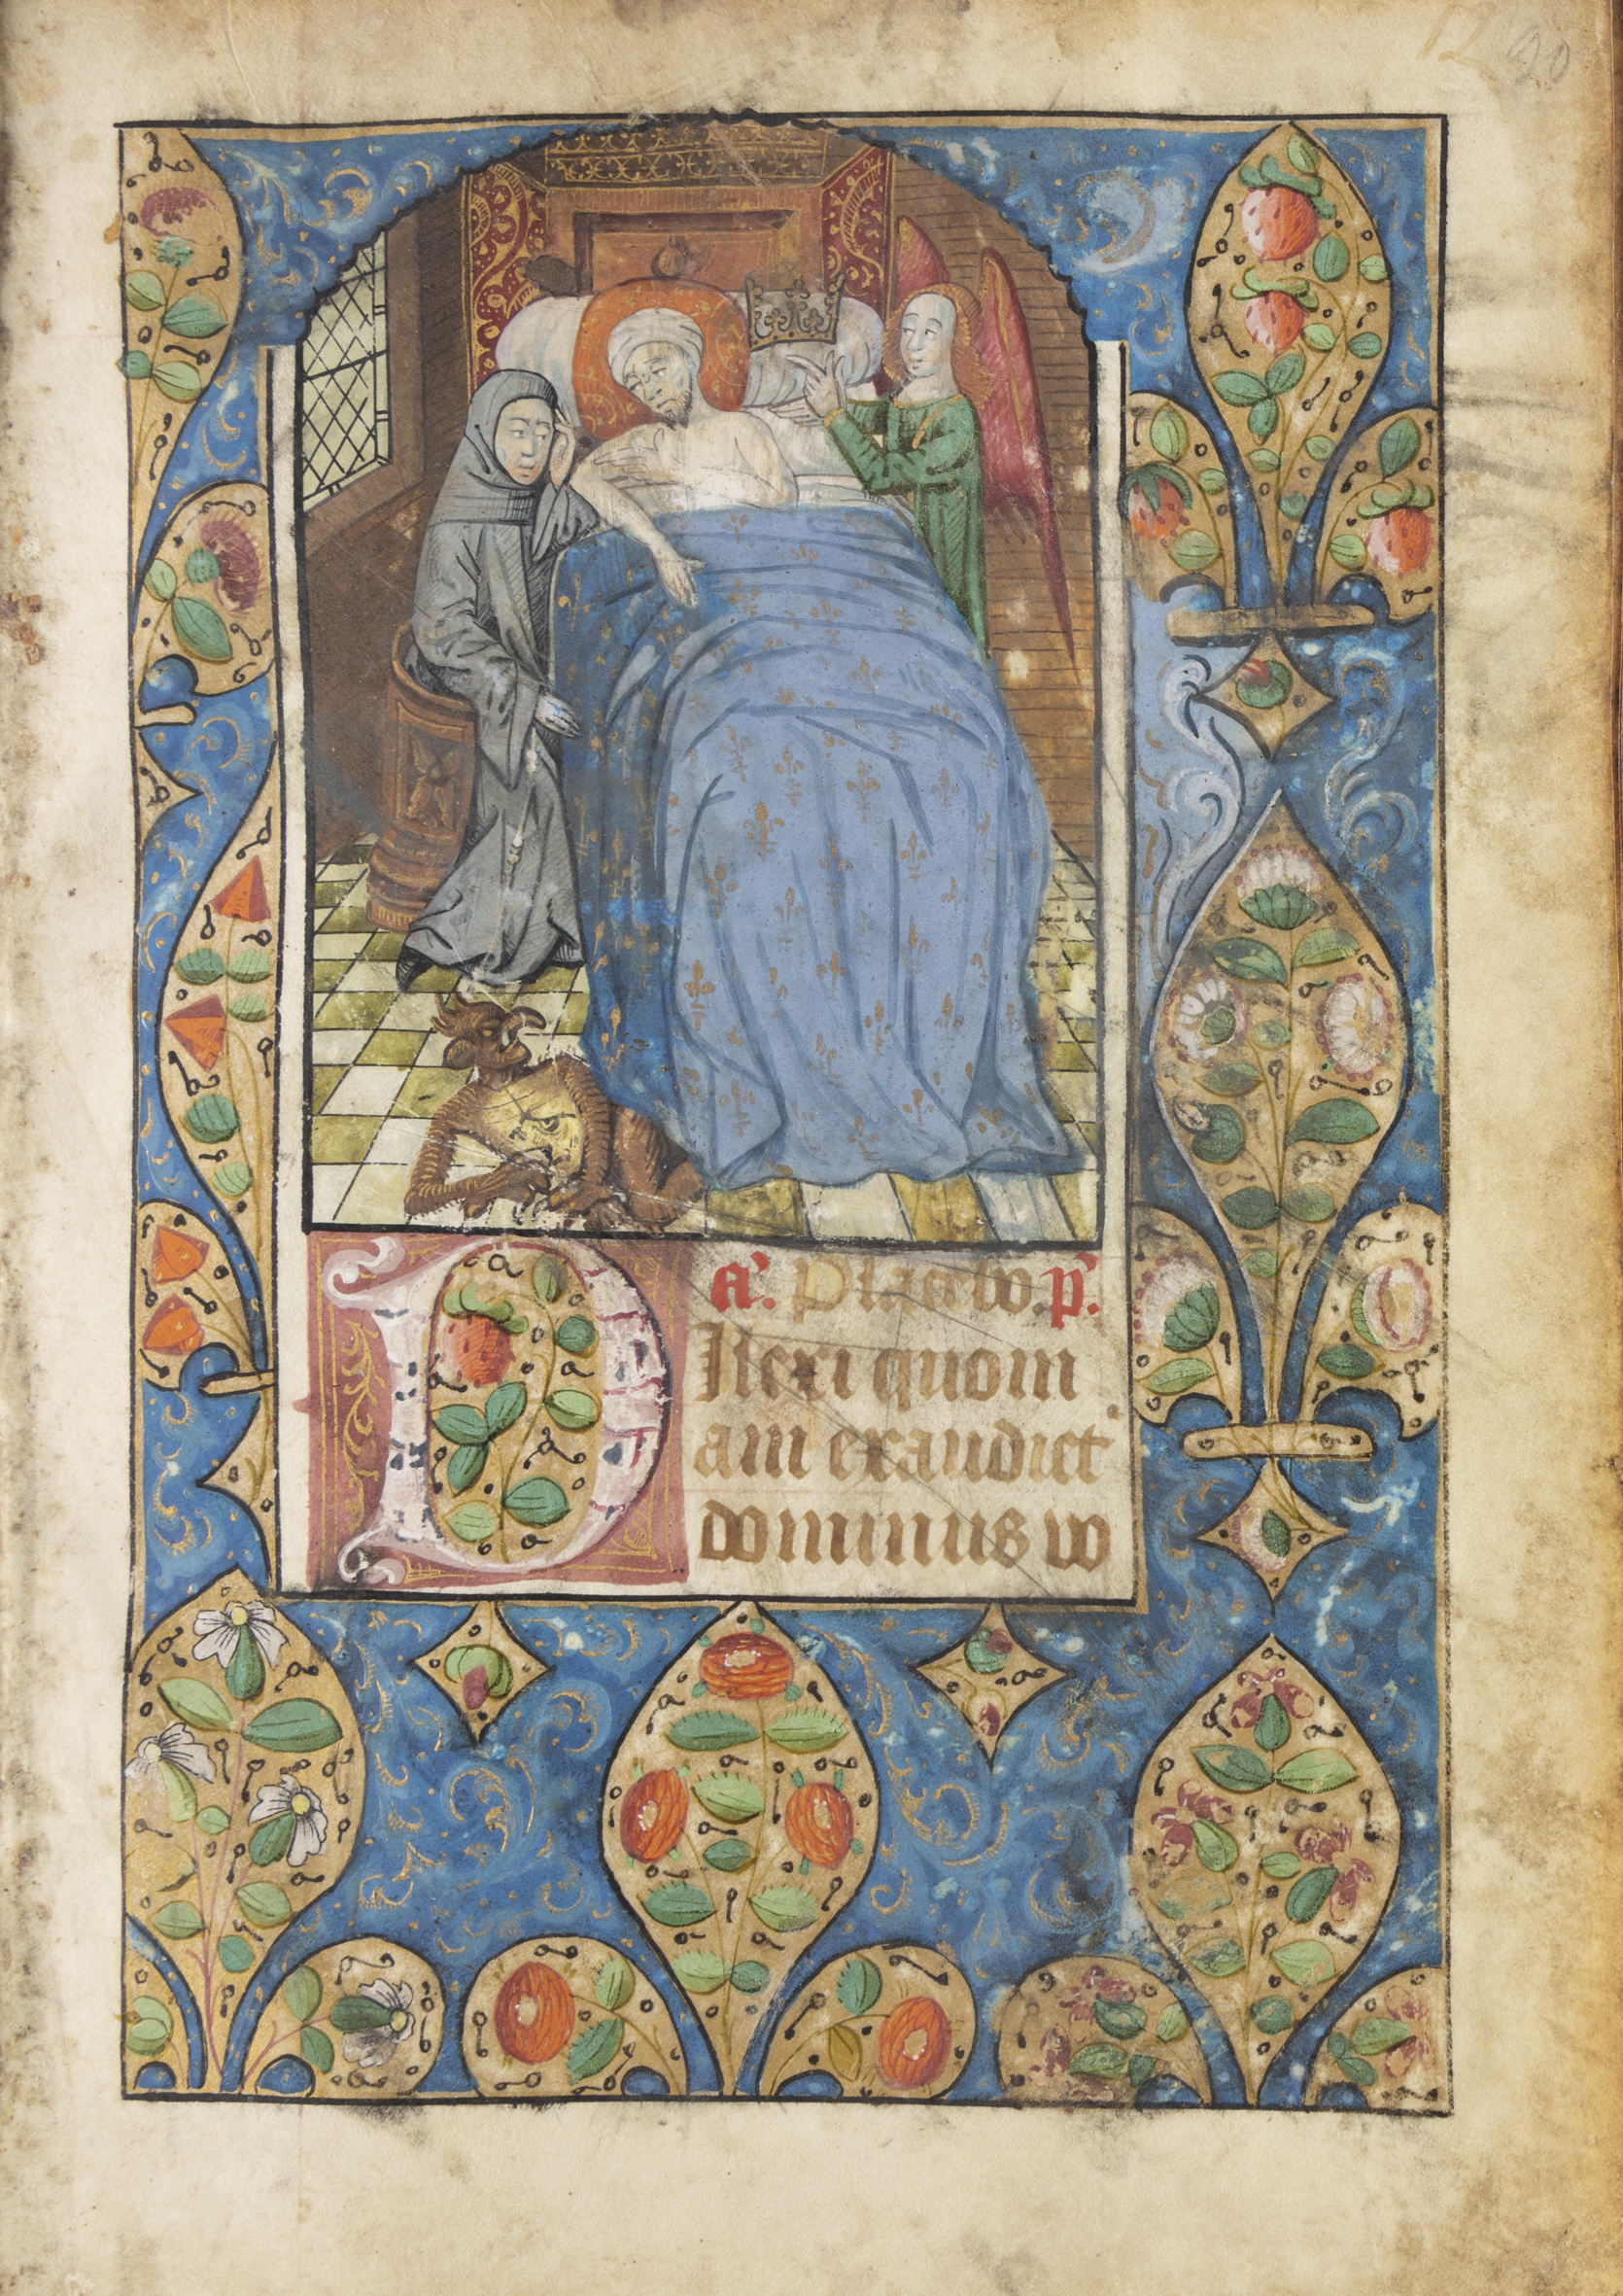 90
a'. Placebo. p̄.
Dilexi quom
am exaudiet
dominus vo